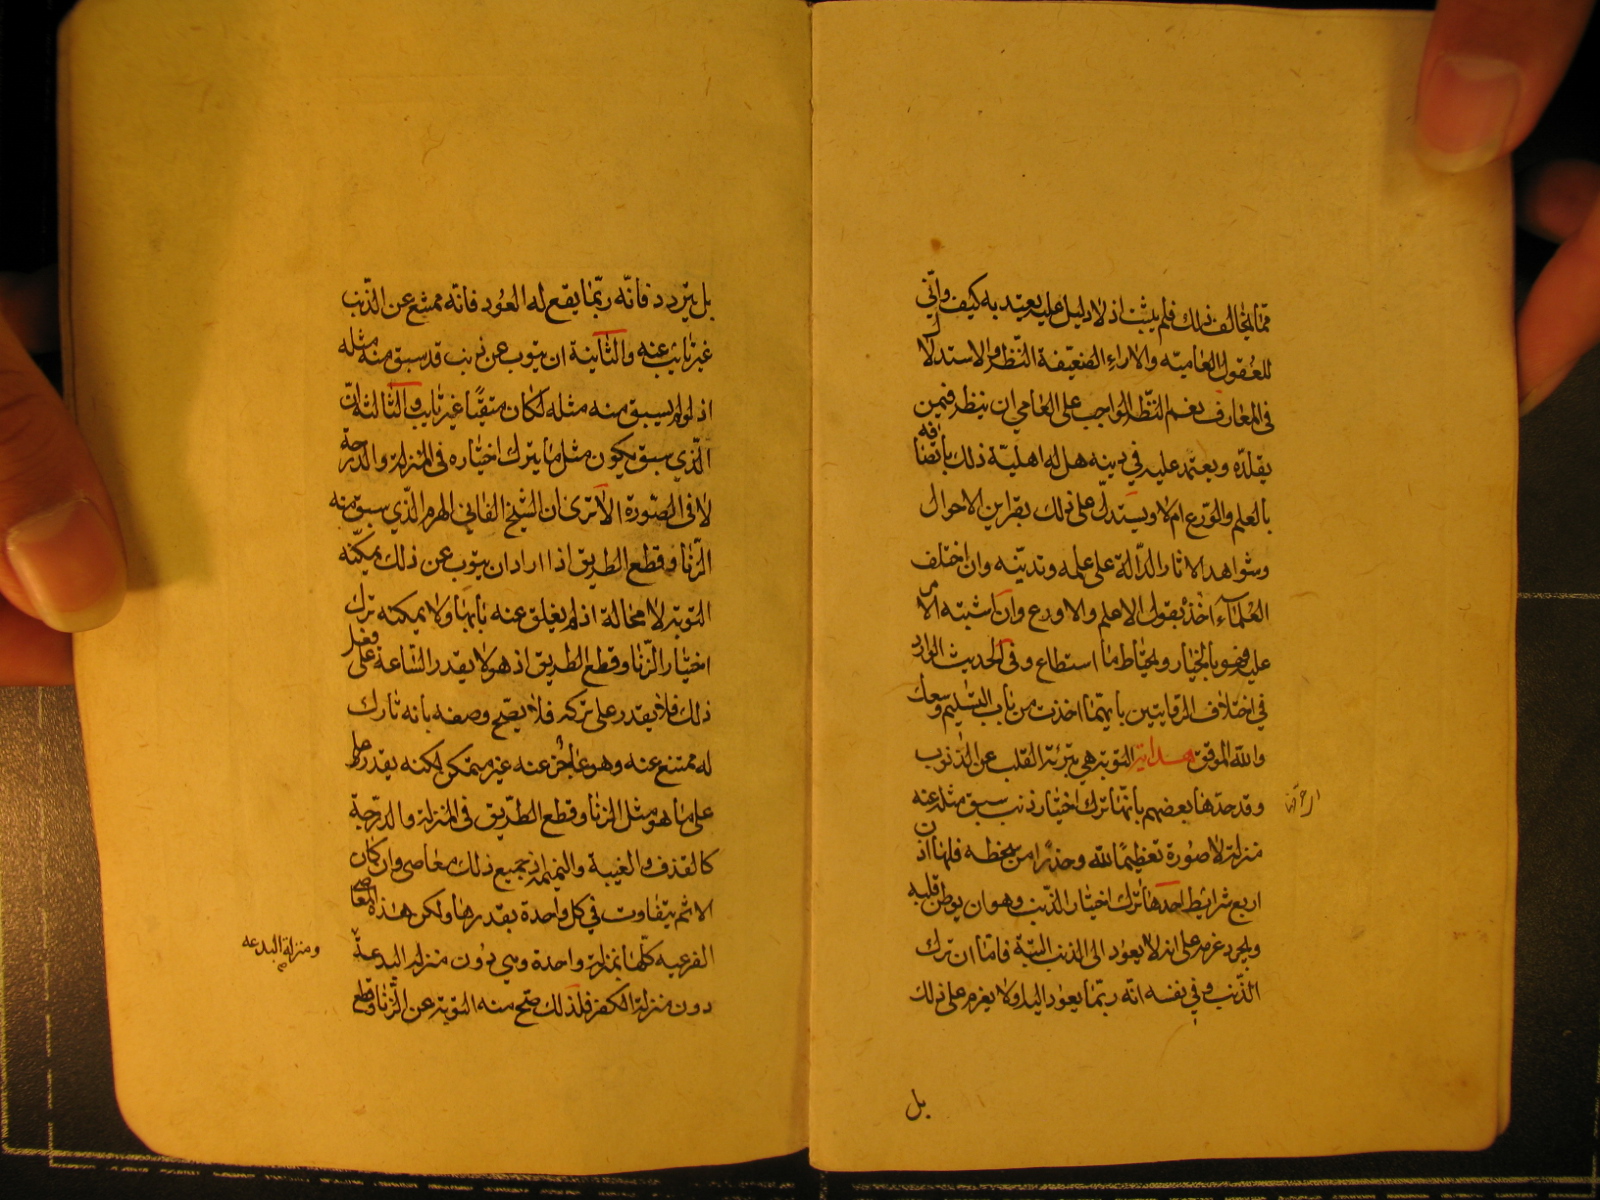 ممّا يخالف ذلك فلم يثبت اذ لا دليل عليه يعتد به كيف وانّى
للعقول العاميّه والاراء الضعيفة النّظر والاستدلال
فى المعارف نعم النّظر الواجب على العامي ان ينظر فيمن
يقلدّه ويعتمد عليه في دينه هل له اهليّة ذلك باتصافه
بالعلم والورع ام لا ويستدلّ على ذلك بقراين الاحوال
وشواهد الاثار الدّالة على علمه وتديّنه وان اختلف
العُلمآء اخذ بقول الاعلم والاورع وان اشتبه الامر
عليه فهو بالخيار ويحتاط ما استطاع وفى الحديث الوارد
في اختلاف الروايتين بايّهما اخذت من باب التسليم وسعك
والله الموفق هداية التوبة هي تبرئة القلب عن الذنوب
وقد حدها بعضهم بانّها ترك اختيار ذنب سبق مثله عنه
منزلة لا صورة تعظيمًا لله وحذرًا من سخطه فلها اذن
اربع شرايط احدها ترك اختيار الذّنب وهو ان يوطن قلبه
ويجرد عزمه على انه لا يعود الى الذنب البتّة فامّا ان ترك
الذّنب وفي نفسه انّه ربّما يعود اليه ولا يعزم على ذلك
بل
بل يتردد فانّه ربّما يقع له العود فانّه ممتنع عن الذّنب
غير تايب عنه والثانية ان يتوب عن ذنب قد سبق منه مثله
اذ لو لم يسبق منه مثله لكان متقيًا غير تايب والثالثة انّ
الّذي سبق يكون مثل ما يترك اختياره فى المنزلة والدرجة
لا فى الصّورة الا ترى ان الشيخ الفاني الهرم الّذي سبق منه
الزّنا وقطع الطريق اذا اراد ان يتوب عن ذلك يمكنه
التوبة لا محالة اذ لم يغلق عنه بابها ولا يمكنه ترك
اختيار الزّنا وقطع الطريق اذ هو لا يقدر السّاعة على فعل
ذلك فلا يقدر على تركه فلا يصحّ وصفه بانه تارك
له ممتنع عنه وهو عاجز عنه غير متمكن لكنه يقدر
على ما هو مثل الزنا وقطع الطّريق فى المنزلة والدرجة
كالقذف والغيبة والنميمة اذ جميع ذلك معاصى وان كان
الاثم يتفاوت في كل واحدة بقدرها ولكن هذه المعاصي
الفرعيه كلّها بمنزلة واحدة وهي دون منزلة البدعة
ومنزلة البدعه
دون منزلة الكفر فلذلك صحّ منه التوبة عن الزّنا وقطع